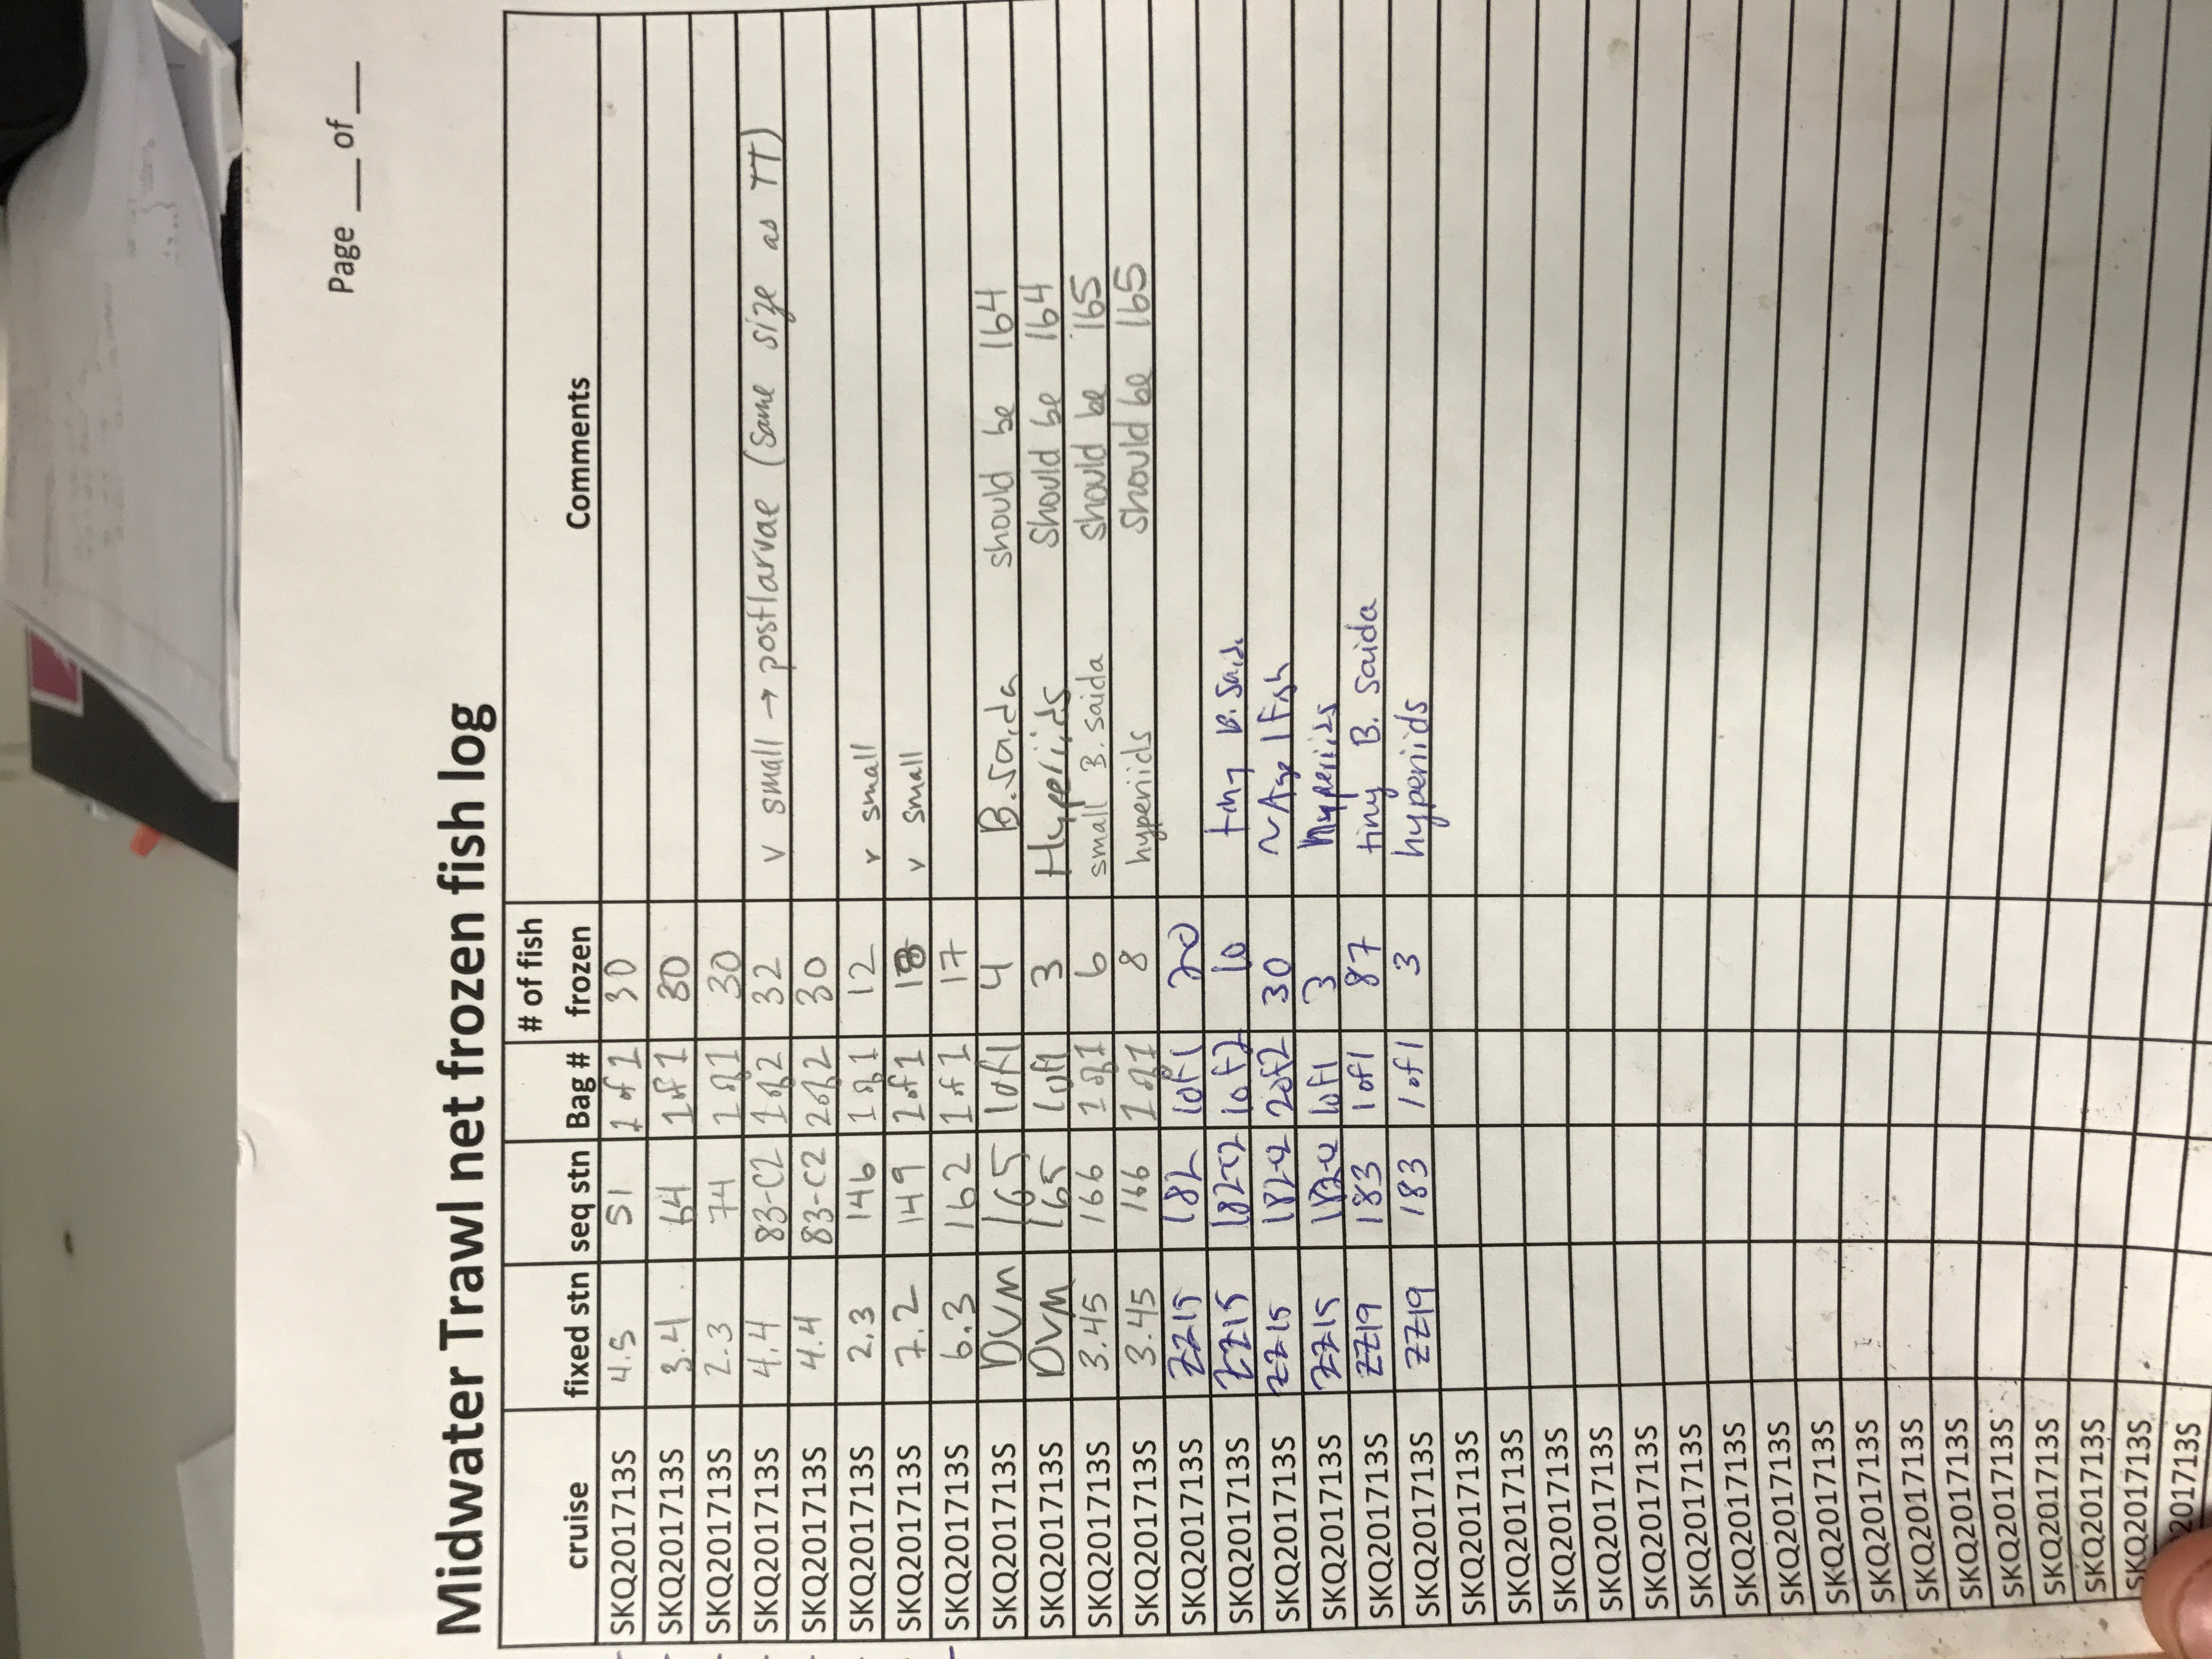 Page ___ of ___
Midwater Trawl net frozen fish log
cruise fixed stn seq stn Bag # # of fish frozen Comments
SKQ201713S 4.5 51 1 of 1 30
SKQ201713S 3.4 64 1 of 1 30
SKQ201713S 2.3 74 1 of 1 30
SKQ201713S 4.4 83-C2 1 of 2 32 v small → postlarvae (same size as TT)
SKQ201713S 4.4 83-C2 2 of 2 30
SKQ201713S 2.3 146 1 of 1 12 v small
SKQ201713S 7.2 149 1 of 1 18 v small
SKQ201713S 6.3 162 1 of 1 17
SKQ201713S DVM 165 1 of 1 4 B. saida should be 164
SKQ201713S DVM 165 1 of 1 3 Hyperiids should be 164
SKQ201713S 3.45 166 1 of 1 6 small B. saida should be 165
SKQ201713S 3.45 166 1 of 1 8 hyperiids should be 165
SKQ201713S ZZ15 182 1 of 1 20
SKQ201713S ZZ15 182-C2 1 of 2 10 tiny B. Saida
SKQ201713S ZZ15 182-C2 2 of 2 30 ~Age 1 Fish
SKQ201713S ZZ15 182-C2 1 of 1 3 Hyperiids
SKQ201713S ZZ19 183 1 of 1 87 tiny B. Saida
SKQ201713S ZZ19 183 1 of 1 3 hyperiids
SKQ201713S
SKQ201713S
SKQ201713S
SKQ201713S
SKQ201713S
SKQ201713S
SKQ201713S
SKQ201713S
SKQ201713S
SKQ201713S
SKQ201713S
SKQ201713S
SKQ201713S
SKQ201713S
SKQ201713S
SKQ201713S
201713S